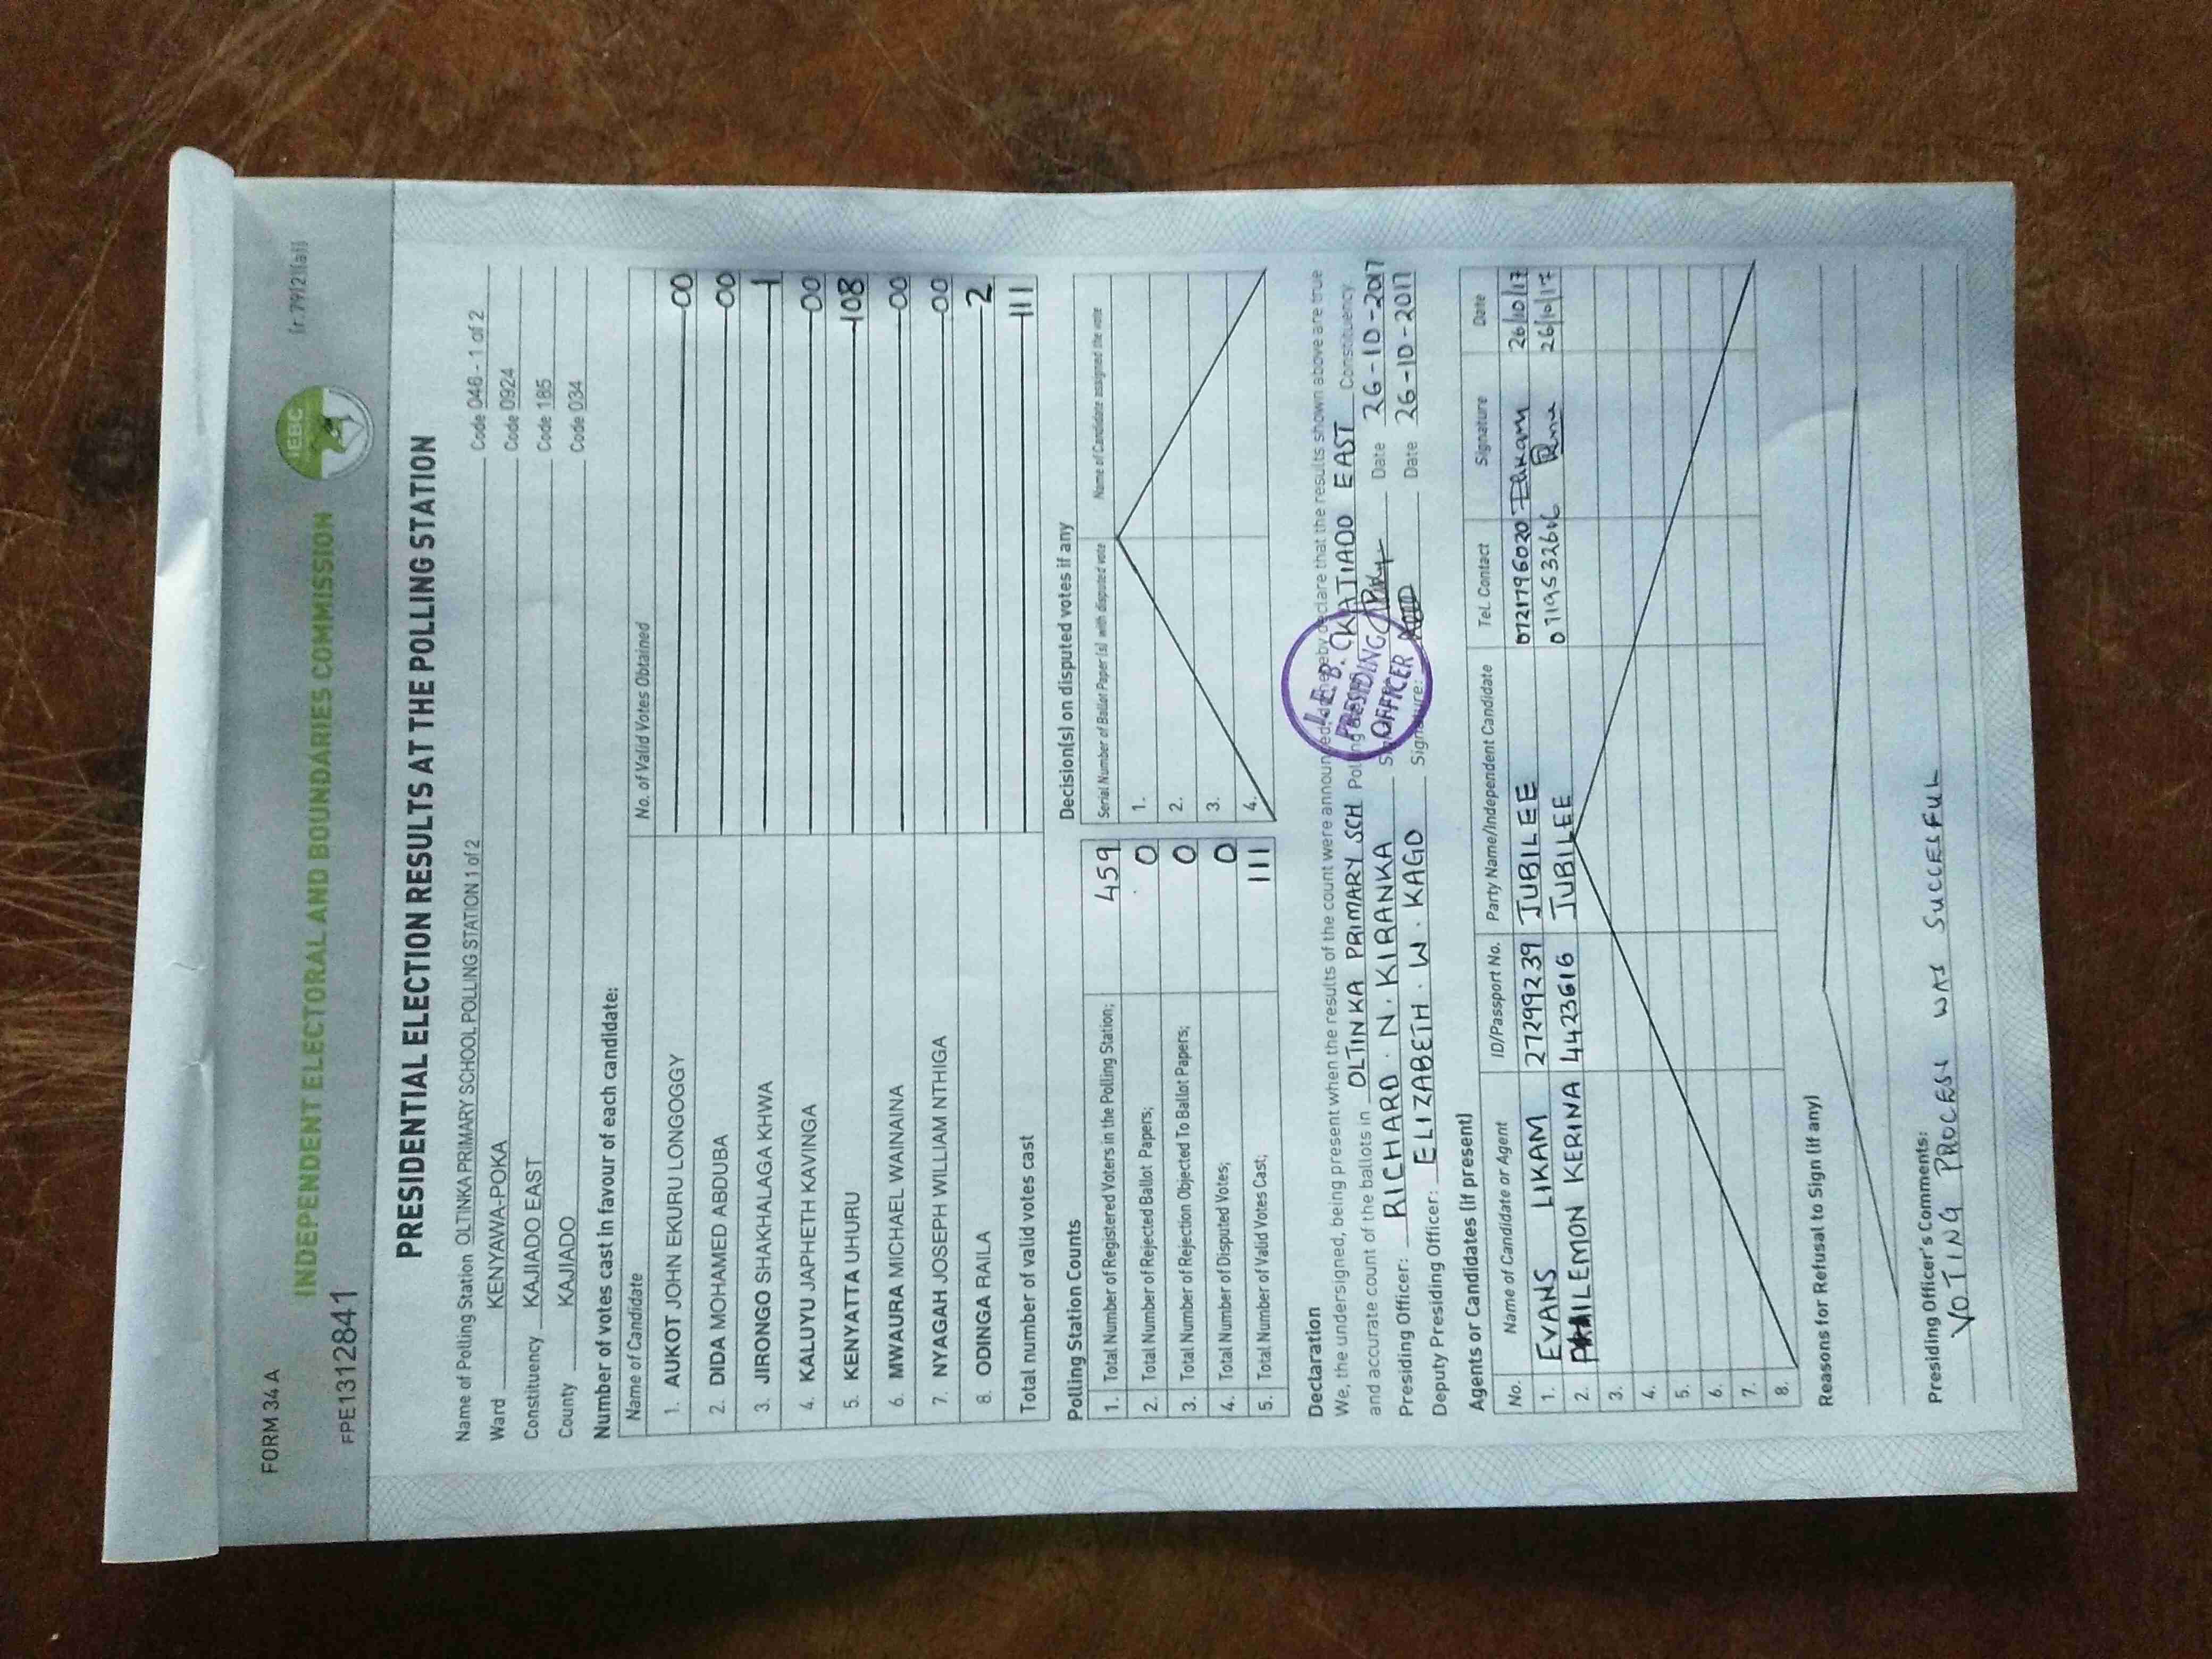 FORM 34 A
(r.79(2)(a))
INDEPENDENT ELECTORAL AND BOUNDARIES COMMISSION
IEBC
FPE1312841
PRESIDENTIAL ELECTION RESULTS AT THE POLLING STATION
Name of Polling Station OLTINKA PRIMARY SCHOOL POLLING STATION 1 of 2 Code 046 - 1 of 2
Ward KENYAWA-POKA Code 0924
Constituency KAJIADO EAST Code 185
County KAJIADO Code 034
Number of votes cast in favour of each candidate:
Name of Candidate No. of Valid Votes Obtained
1. AUKOT JOHN EKURU LONGOGGY 00
2. DIDA MOHAMED ABDUBA 00
3. JIRONGO SHAKHALAGA KHWA 1
4. KALUYU JAPHETH KAVINGA 00
5. KENYATTA UHURU 108
6. MWAURA MICHAEL WAINAINA 00
7. NYAGAH JOSEPH WILLIAM NTHIGA 00
8. ODINGA RAILA 2
Total number of valid votes cast 111
Polling Station Counts
1. Total Number of Registered Voters in the Polling Station; 459
2. Total Number of Rejected Ballot Papers; 0
3. Total Number of Rejection Objected To Ballot Papers; 0
4. Total Number of Disputed Votes; 0
5. Total Number of Valid Votes Cast; 111
Decision(s) on disputed votes if any
Serial Number of Ballot Paper (s) with disputed vote Name of Candidate assigned the vote
1.
2.
3.
4.
Declaration
We, the undersigned, being present when the results of the count were announced, do hereby declare that the results shown above are true
and accurate count of the ballots in OLTINKA PRIMARY SCH Polling KAJIADO EAST Constituency
Presiding Officer: RICHARD . N . KIRANKA Date 26-10-2017
Deputy Presiding Officer: ELIZABETH . W . KAGO Signature: Date 26-10-2017
PRESIDING
OFFICER
Agents or Candidates (if present)
No. Name of Candidate or Agent ID/Passport No. Party Name/Independent Candidate Tel. Contact Signature Date
1. EVANS LIKAM 27299239 JUBILEE 0721796020 26/10/17
2. PHILEMON KERINA 4423616 JUBILEE 0719532616 26/10/17
3.
4.
5.
6.
7.
8.
Reasons for Refusal to Sign (if any)
Presiding Officer's Comments:
VOTING PROCESS WAS SUCCESFUL